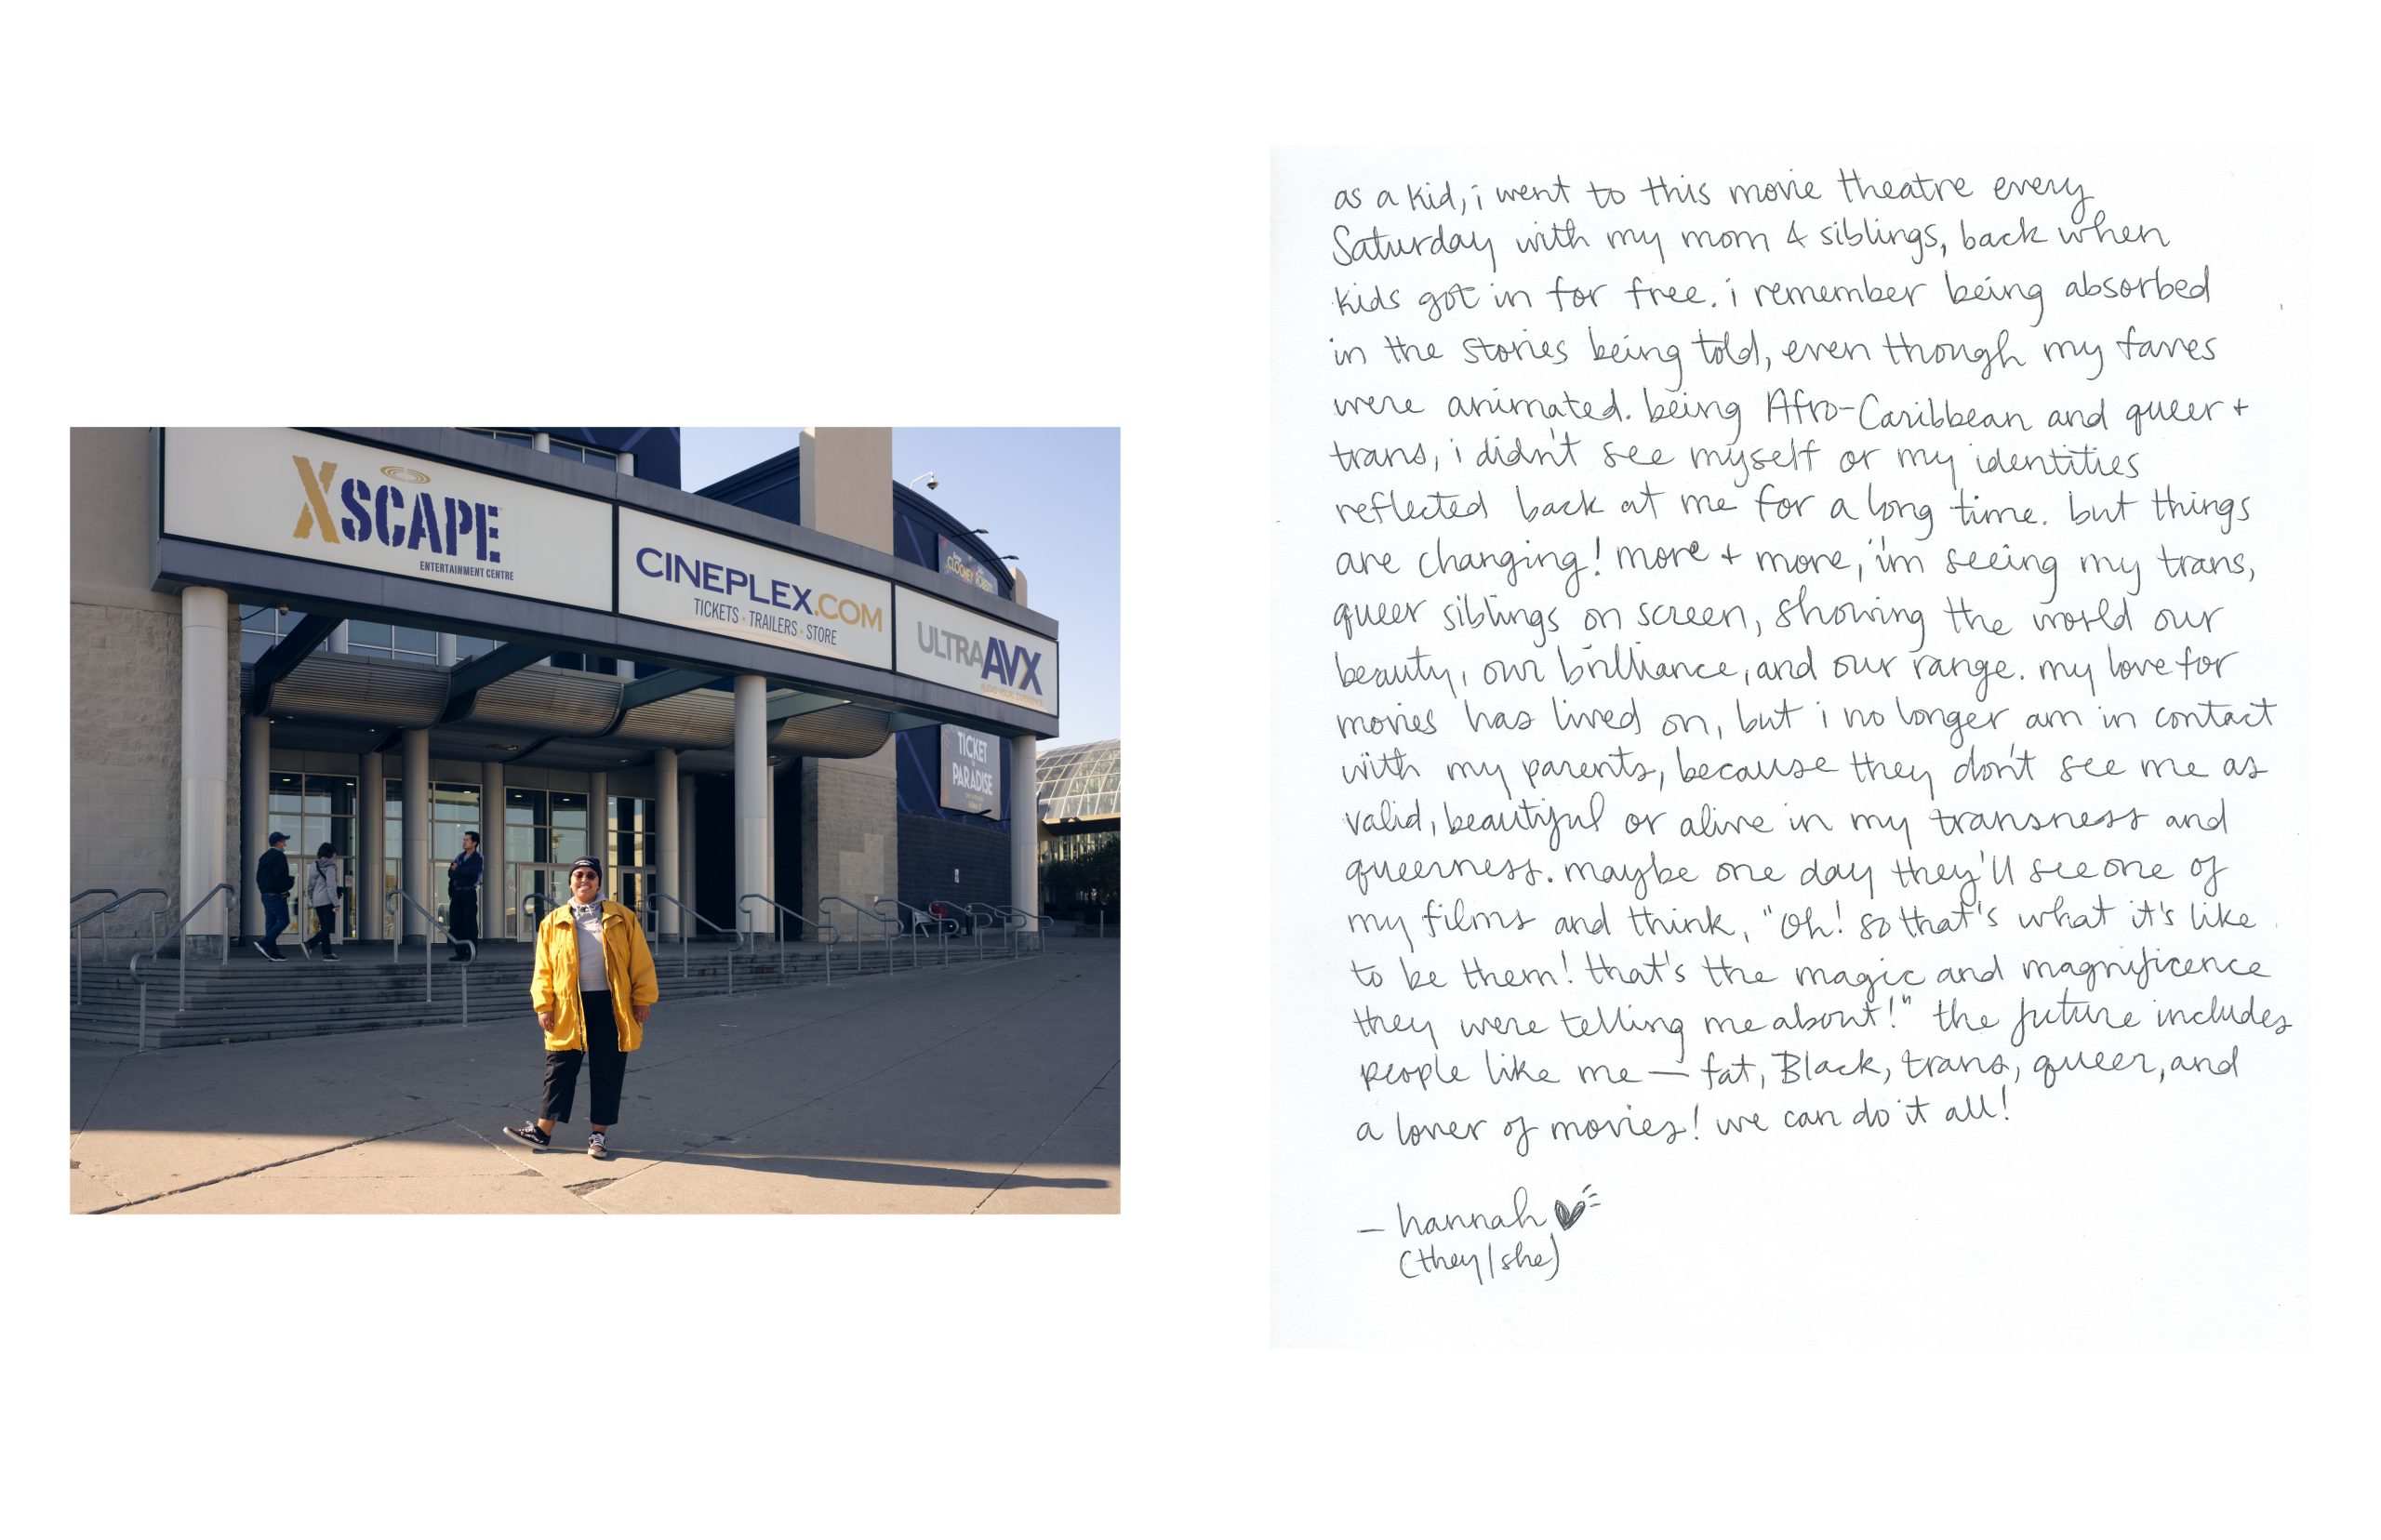 XSCAPE
ENTERTAINMENT CENTRE
CINEPLEX.COM
TICKETS · TRAILERS · STORE
ULTRAAVX
CLOONEY ROBERTS
TICKET
PARADISE
as a kid, i went to this movie theatre every
Saturday with my mom & siblings, back when
kids got in for free. i remember being absorbed
in the stories being told, even though my faves
were animated. being Afro-Caribbean and queer +
trans, i didn't see myself or my identities
reflected back at me for a long time. but things
are changing! more + more, i'm seeing my trans,
queer siblings on screen, showing the world our
beauty, our brilliance, and our range. my love for
movies has lived on, but i no longer am in contact
with my parents, because they don't see me as
valid, beautiful or alive in my transness and
queerness. maybe one day they'll see one of
my films and think, "Oh! so that's what it's like
to be them! that's the magic and magnificence
they were telling me about!" the future includes
people like me — fat, Black, trans, queer, and
a lover of movies! we can do it all!
— hannah
(they/she)